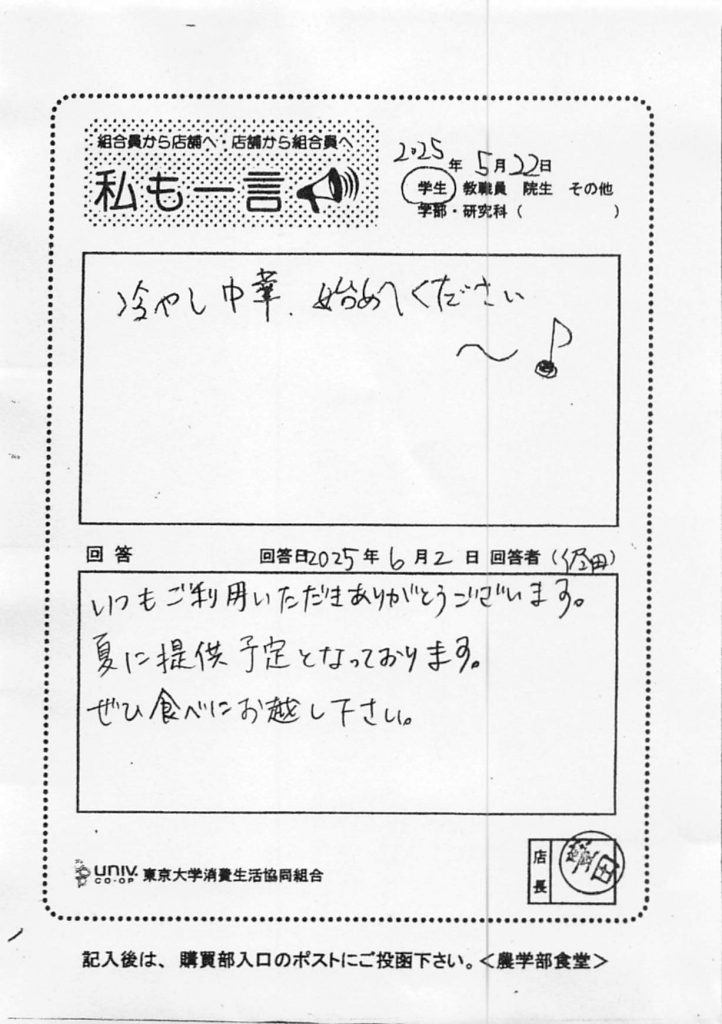 組合員から店舗へ・店舗から組合員へ
私も一言
2025年5月22日
学生 教職員 院生 その他
学部・研究科( )
冷やし中華、始めてください
〜♪
回答 回答日2025年6月2日 回答者(佐田)
いつもご利用いただきありがとうございます。
夏に提供予定となっております。
ぜひ食べにお越し下さい。
UNIV. CO-OP 東京大学消費生活協同組合
店長
記入後は、購買部入口のポストにご投函下さい。<農学部食堂>